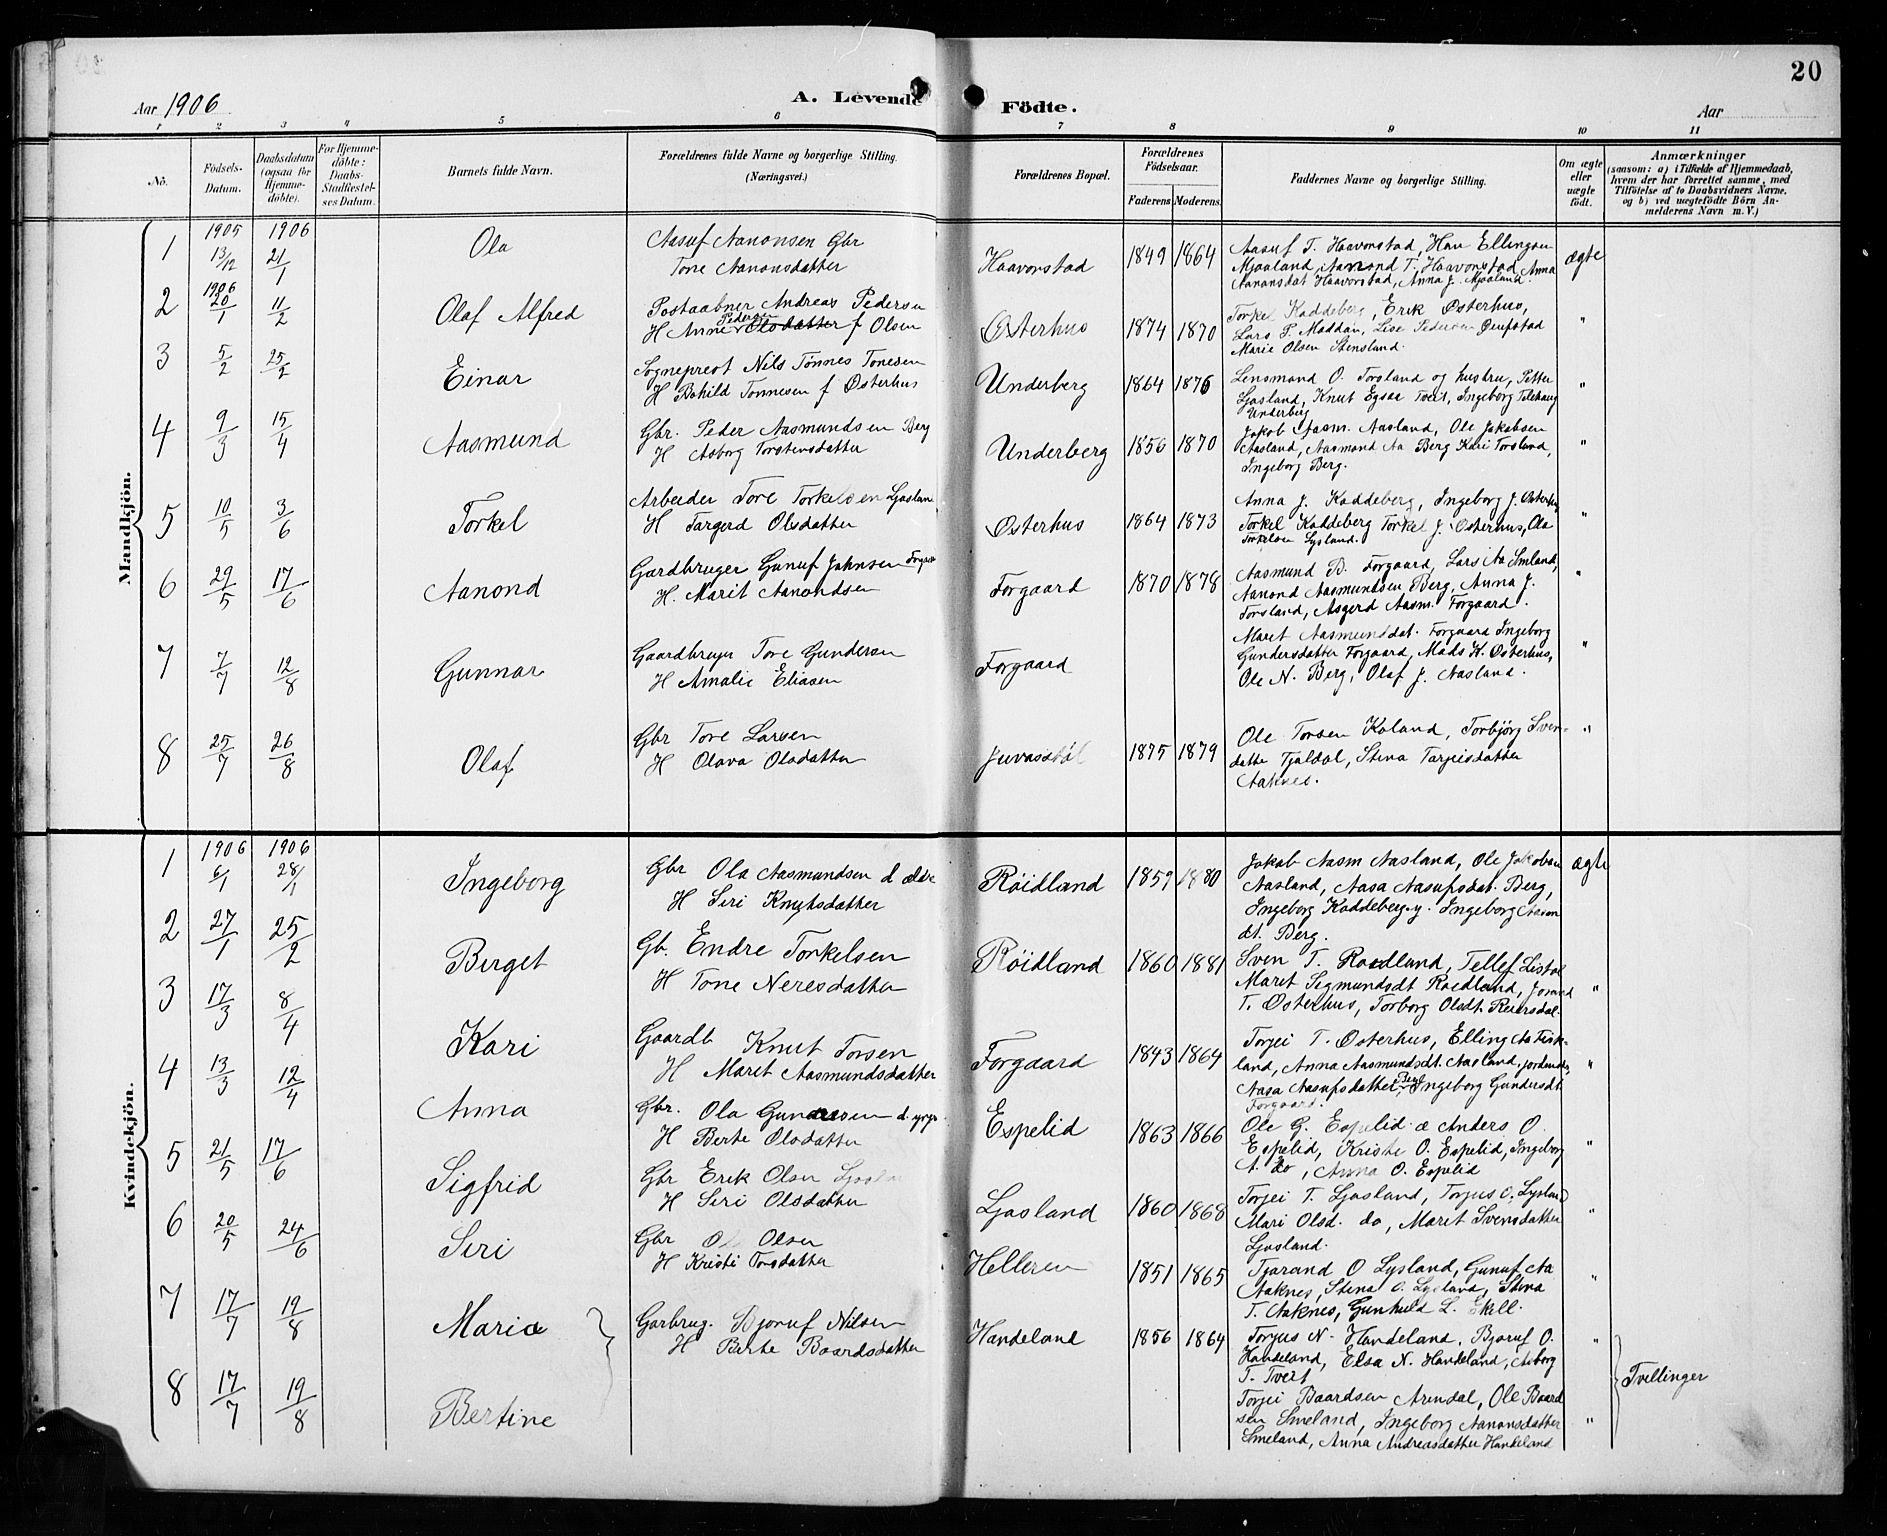 20
Aar 1906
A. Levende Födte.
Aar
1 2 3 4 5 6 7 8 9 10 11
No.
Födsels-
Datum.
Daabsdatum
(ogsaa for
Hjemme-
döbte).
For Hjemme-
döbte:
Daabs-
Stadfæstel-
ses Datum.
Barnets fulde Navn.
Forældrenes fulde Navne og borgerlige Stilling.
(Næringsvei.)
Forældrenes Bopæl.
Forældrenes
Födselsaar.
Faderens Moderens.
Faddernes Navne og borgerlige Stilling.
Om ægte
eller
uægte
födt.
Anmærkninger
(saasom: a) i Tilfælde af Hjemmedaab,
hvem der har forrettet samme, med
Tilföielse af to Daabsvidners Navne,
og b) ved uægtefödte Börn An-
melderens Navn m. V.)
Mandkjön.
1 1905 13/12 1906 21/1 Ola
Aasuf Aanonsen Gbr
Tone Aanonsdatter
Haavorstad 1849 1864
Aasuf T. Haavorstad, Han Ellingsen
Mjaaland, Aanond T. Haavorstad, Anna
Aanonsdat Haavorstad, Anna J. Mjaaland.
ægte
2 1906 20/1 11/2 Olaf Alfred
Postaabner Andreas Pedersen
H Anne Pedersen Olsdatter f Olsen
Østerhus 1874 1870
Torkel Kaddeberg, Erik Østerhus,
Lars P. Maddan, Lise Pedersen
Marie Olsen Stensland.
"
3 5/2 25/2 Einar
Sogneprest Nils Tønnes Tonesen
H Bohild Tønnesen f Østerhus
Underberg 1864 1876
Lensmand O. Torsland og hustru, Petter
Ljosland, Knut Egsaa Tveit, Ingeborg
Underberg
"
4 9/3 15/4 Aasmund
Gbr. Peder Aasmundsen Berg
H Asborg Torstensdatter
Underberg 1856 1870
Jakob Aasm. Aasland, Ole Jakobsen
Aasland, Aasmund Aa Berg Kari Torsland,
Ingeborg Berg.
"
5 10/5 3/6 Torkel
Arbeider Tore Torkelsen Ljoslan
H Targerd Olsdatter
Østerhus 1864 1873
Anna J. Kaddeberg, Ingeborg J. Østerhus
Torkel Kaddeberg Torkel J. Østerhus, Ola
Torkelsen Lysland.
"
6 29/5 17/6 Aanond
Gardbruger Gunuf Johnsen
H. Marit Aanondsen
Forgaard 1870 1878
Aasmund B. Forgaard, Lars Aa Smland,
Aanond Aasmundsen Berg, Anna J.
Torsland, Asgerd Aasm. Forgaard.
"
7 7/7 12/8 Gunnar
Gaardbruger Tore Gundersn
H Amalie Eliasen
Forgaard
Maret Aasmunddat. Forgaard Ingeborg
Gundersdatter Forgaard, Mads K. Østerhus,
Ole N. Berg, Olaf J. Aasland.
"
8 25/7 26/8 Olaf
Gbr Tore Larsen
H Olava Olsdatter
Juvasstøl 1875 1879
Ole Torsen Kaland, Torbjørg Sven-
datte Tjaldal, Stina Tarjeisdatter
Aaknes.
"
Kvindekjön.
1 1906 6/1 1906 28/1 Ingeborg
Gbr Ola Aasmundsen d ældr
H Siri Knutsdatter
Röidland 1859 1880
Jakob Aasm Aasland, Ole Jakobsen
Aasland, Aasa Aasufsdat. Berg,
Ingeborg Kaddeberg y. Ingeborg Aanon
dt. Berg.
ægte
2 27/1 25/2 Berget
Gb. Endre Torkelsen
H Tone Neresdatter
Röidland 1860 1881
Sven T. Roidland, Tellef Listøl
Maret Sigmundsdt Roidland, Jorand
T. Østerhus, Torborg Olsdt. Reiersdal.
"
3 17/3 8/4 Kari
Gaardb Knut Torsen
H Maret Aasmundsdatter
Forgaard 1843 1864
Torjei T. Østerhus, Elling Aa Fisk-
land, Anna Aasmundsdt. Aasland,
Aasa Aasufsdatter Berg, Ingeborg Gundersdt.
Forgaard.
"
4 13/3 12/4 Anna
Gbr. Ola Gundersen d. yngr.
H Berte Olsdatter
Espelid 1863 1866
Ole G. Espelid æ Anders O.
Espelid, Kristi O. Espelid, Ingeborg
A. do, Anna O. Espelid
"
5 21/5 17/6 Sigfrid
Gbr Erik Olsen
H Siri Olsdatter
Ljosland 1860 1868
Torjei T. Ljosland, Torjus O. Lysland
Mari Olsd. do, Maret Svensdatter
Ljosland.
"
6 20/5 24/6 Siri
Gbr Ole Olsen
H Kristi Torsdatter
Helleren 1851 1865
Tjarand O Lysland, Gunuf Aa
Aaknes, Stina O. Lysland, Stina
T. Aaknes, Gunhild L. Ekell.
"
7 17/7 19/8 Maria
Garbrug. Bjoruf Nilsen
H Berte Baardsdatter
Handeland 1856 1864
Torjus N. Handeland, Bjoruf O.
Handeland, Elsa N. Handeland, Asborg
T. Tveit
"
Tvillinger
8 17/7 19/8 Bertine
Torjei Baardsen Arendal, Ole Baard
sen Smeland, Ingeborg Aanonsdatter
Smeland, Anna Andreasdatter Handeland
"